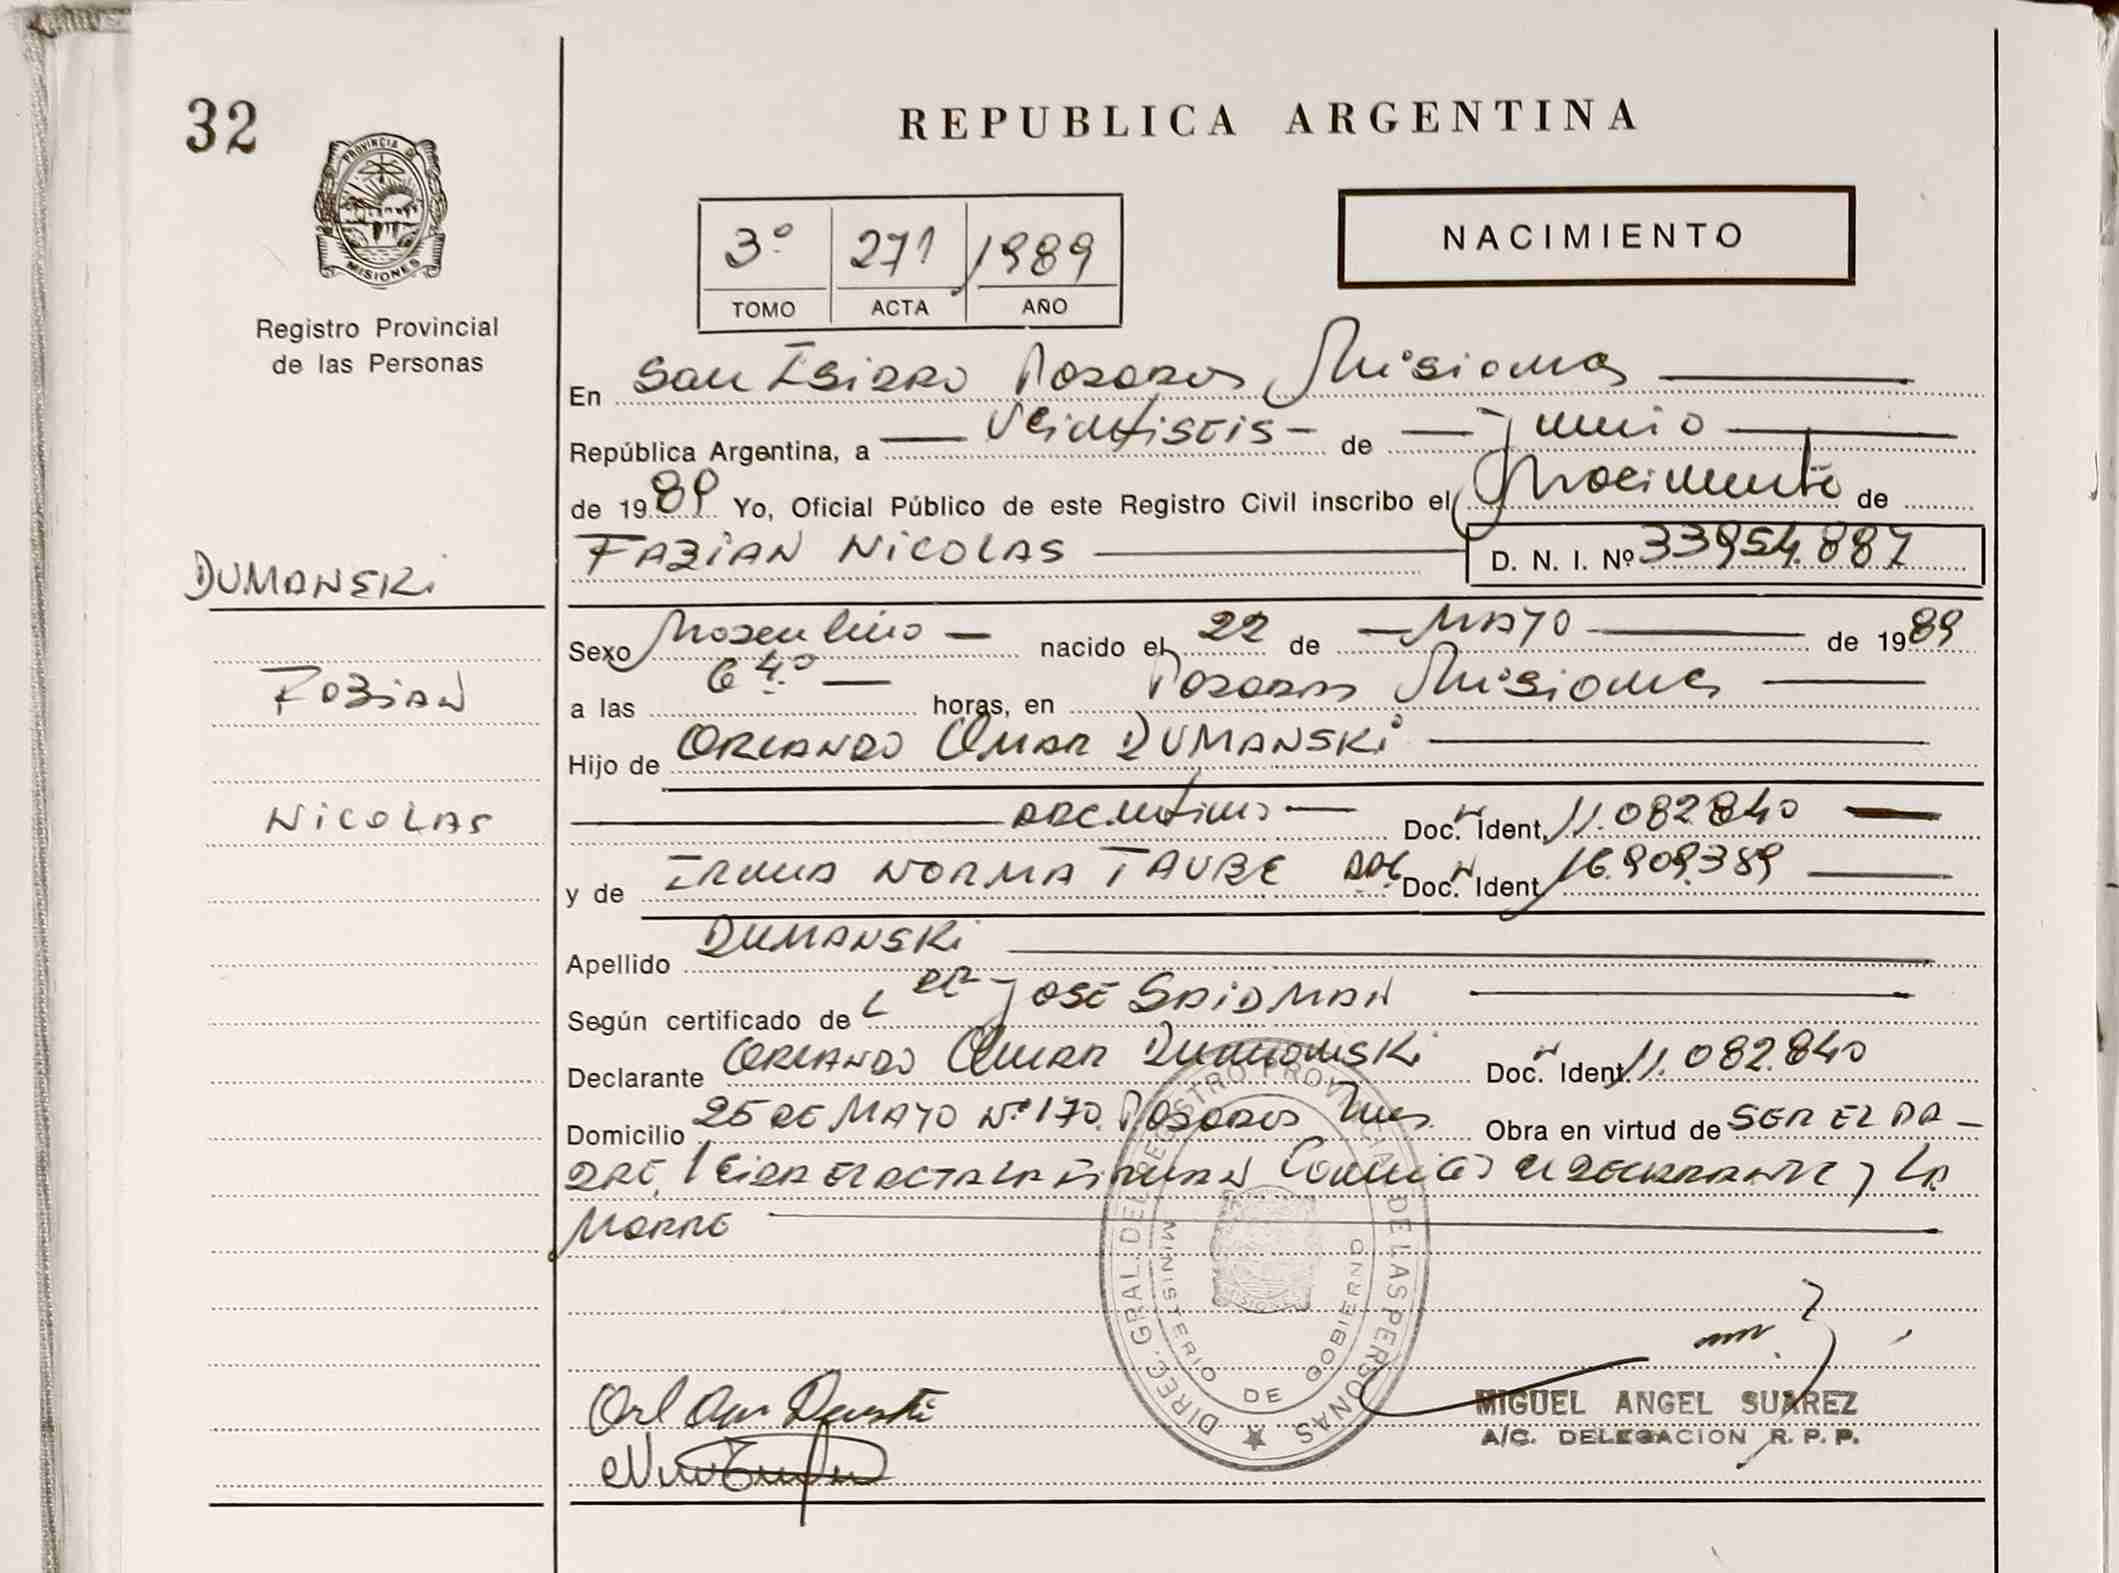 32
REPUBLICA ARGENTINA
PROVINCIA D
MISIONES
Registro Provincial
de las Personas
3º 271 1989
TOMO ACTA AÑO
NACIMIENTO
En San Isidro Posadas Misiones
República Argentina, a Veintiseis de junio
de 1989 Yo, Oficial Público de este Registro Civil inscribo el Nacimiento de
FABIAN NICOLAS D. N. I. Nº 33954.887
DUMANSKi
FABIAN
NICOLAS
Sexo Masculino nacido el 22 de MAYO de 1989
a las 6 4.º horas, en Posadas Misiones
Hijo de ORLANDO OMAR DUMANSKi
argentino Doc. N Ident. 11.082840
y de IRMA NORMA TAUBE ARG Doc. N Ident 16.909.389
Apellido DUMANSKi
Según certificado de JOSE SAIDMAN
Declarante ORLANDO OMAR DUMANSKi Doc. N Ident. 11.082.840
Domicilio 25 DE MAYO Nº 170. Posadas Mnes. Obra en virtud de SER EL PA-
DRE, LEIDA EL ACTA LA FIRMAN Conmigo el DECLARANTE y LA
MADRE
DIREC. GRAL. DEL REGISTRO PROVINCIAL DE LAS PERSONAS
MINISTERIO DE GOBIERNO
MIGUEL ANGEL SUAREZ
A/C. DELEGACION R. P. P.